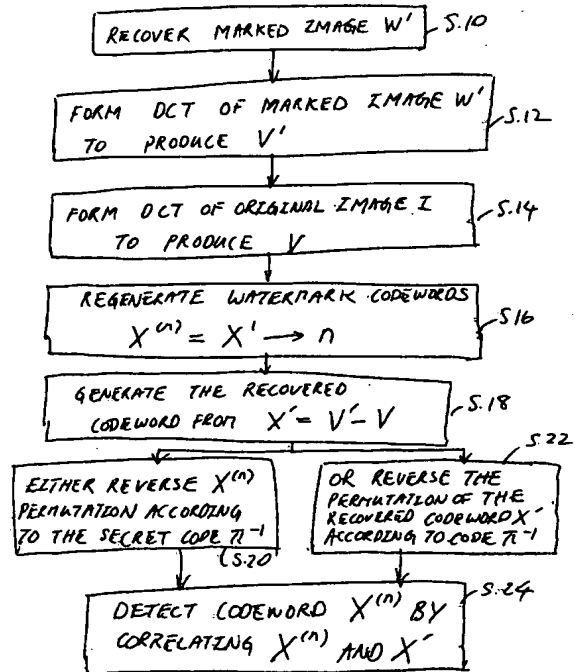 RECOVER MARKED IMAGE W'
S.10
FORM DCT OF MARKED IMAGE W'
TO PRODUCE V'
S.12
FORM DCT OF ORIGINAL IMAGE I
TO PRODUCE V
S.14
REGENERATE WATERMARK CODEWORDS
X⁽ⁿ⁾ = X' → n
S16
GENERATE THE RECOVERED
CODEWORD FROM X' = V' - V
S.18
EITHER REVERSE X⁽ⁿ⁾
PERMUTATION ACCORDING
TO THE SECRET CODE π⁻¹
S.20
S.22
OR REVERSE THE
PERMUTATION OF THE
RECOVERED CODEWORD X'
ACCORDING TO CODE π⁻¹
S.24
DETECT CODEWORD X⁽ⁿ⁾ BY
CORRELATING X⁽ⁿ⁾ AND X'